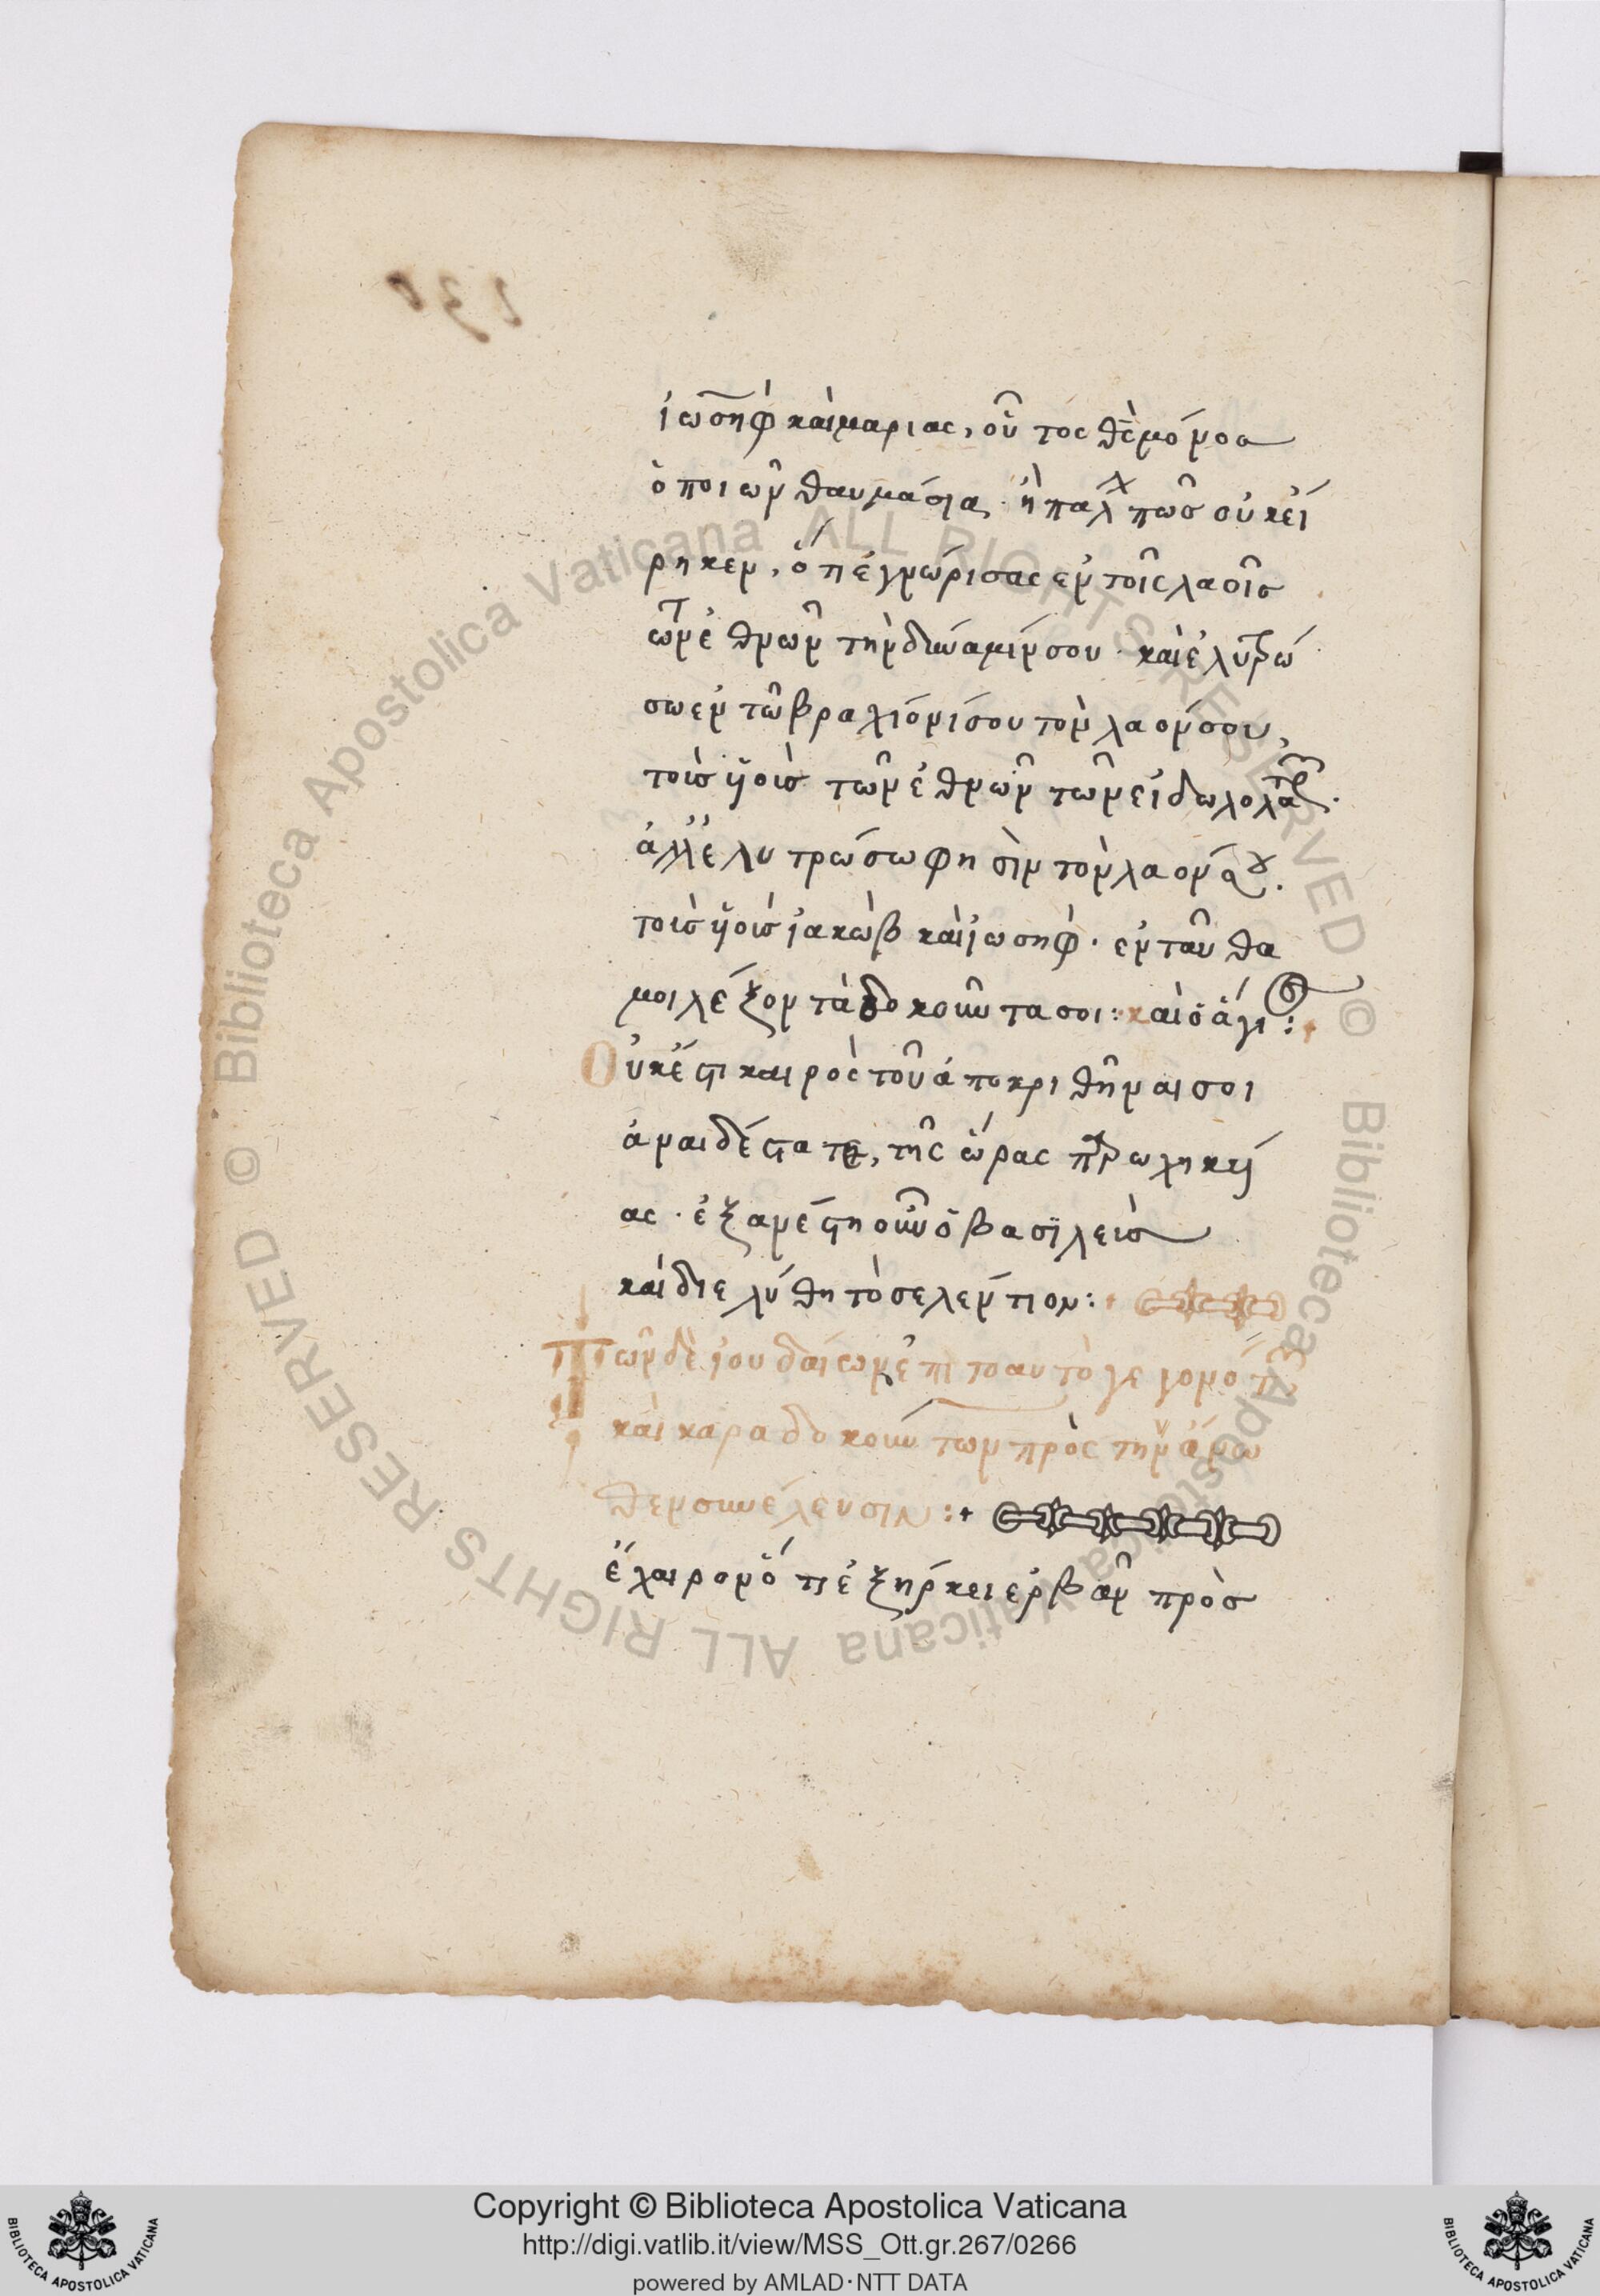 ἰωσὴφ καὶ μαρίας, οὗτος θς μόνος
ὁ ποιῶν θαυμάσια · ἢ πάλ πῶς οὐκ εἴ
ρηκεν, ὅτι ἐγνώρισας ἐν τοῖς λαοῖς
τῶν ἐθνῶν τὴν δύναμίν σου · καὶ ἐλυτρώ
σω ἐν τῶ βραχίονί σου τὸν λαόν σου,
τοὺς υἱοὺς τῶν ἐθνῶν τῶν εἰδωλολατρ.
ἀλλ' ἐλυτρώσω φησὶν τὸν λαὸν αυ.
τοὺς υἱοὺς ἰακὼβ καὶ ἰωσήφ · ἐνταῦθα
μοι λέξον τὰ δοκοῦντα σοι : καὶ ὁ ἅγι :
Οὐκ ἔστι καιρὸς τοῦ ἀποκριθῆναι σοι
ἀναιδέστατε, τῆς ὥρας παρωχηκυί
ας · ἐξανέστη οὖν ὁ βασιλεὺς
καὶ διελύθη τὸ σελέντιον :
Τῶν δὲ ἰουδαίων ἐπὶ τὸ αυτὸ γεγονότων
καὶ καραδοκούντων πρὸς τὴν ἄνω
θεν συνέλευσιν :
ἔχαιρον ὅτι ἐξήρκει ἐρβὰν πρὸς
Copyright © Biblioteca Apostolica Vaticana
http://digi.vatlib.it/view/MSS_Ott.gr.267/0266
powered by AMLAD·NTT DATA
BIBLIOTECA APOSTOLICA VATICANA
BIBLIOTECA APOSTOLICA VATICANA
© Biblioteca Apostolica Vaticana ALL RIGHTS RESERVED
© Biblioteca Apostolica Vaticana ALL RIGHTS RESERVED